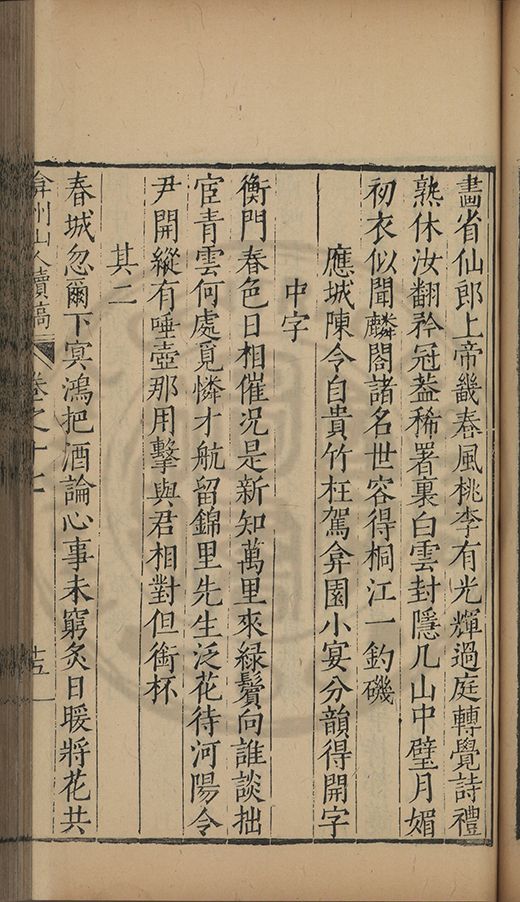 畫省仙郎上帝畿春風桃李有光輝過庭轉覺詩禮
熟休汝翻矜冠葢稀署裏白雲封隱几山中璧月媚
初衣似聞麟閣諸名世容得桐江一釣磯
應城陳令自貴竹枉駕弇園小宴分韻得開字
中字
衡門春色日相催况是新知萬里來緑鬢向誰談拙
宦青雲何處覓憐才航留錦里先生泛花待河陽令
尹開縱有唾壺那用擊與君相對但銜杯
其二
春城忽爾下冥鴻把酒論心事未窮炙日暖將花共
弇州山人續稿 卷之十七 十五